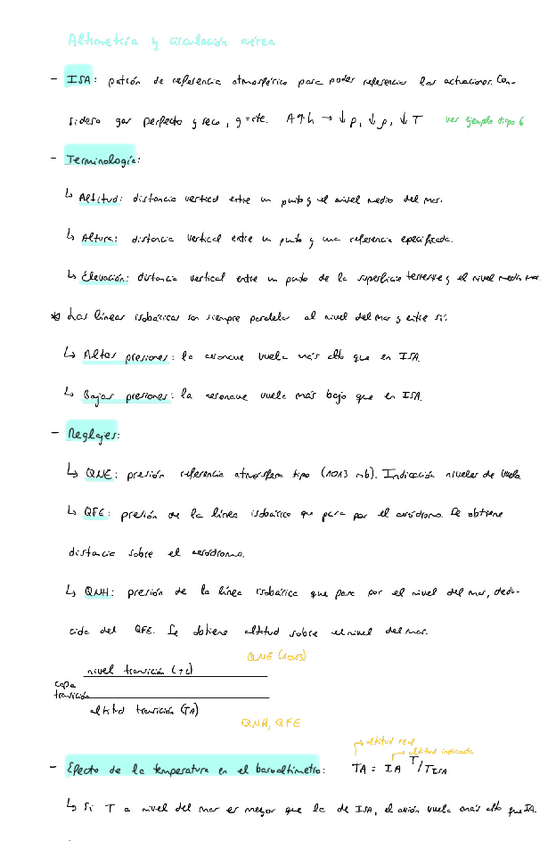 Altimetría y circulación aérea
- ISA: patrón de referencia atmosférico para poder referenciar las actuaciones. Con-
sidera gas perfecto y seco, g=cte. A↑h → ↓p, ↓ρ, ↓T ver ejemplo tipo 6
- Terminología:
↳ Altitud: distancia vertical entre un punto y el nivel medio del mar.
↳ Altura: distancia vertical entre un punto y una referencia especificada.
↳ Elevación: distancia vertical entre un punto de la superficie terrestre y el nivel medio mar.
* Las líneas isobáricas son siempre paralelas al nivel del mar y entre sí:
↳ Altas presiones: la aeronave vuela más alto que en ISA.
↳ Bajas presiones: la aeronave vuela más bajo que en ISA.
- Reglajes:
↳ QNE: presión referencia atmósfera tipo (1013 mb). Indicación niveles de vuelo
↳ QFE: presión de la línea isobárica que pasa por el aeródromo. Se obtiene
distancia sobre el aeródromo.
↳ QNH: presión de la línea isobárica que pasa por el nivel del mar, dedu-
cida del QFE. Se obtiene altitud sobre el nivel del mar.
QNE (1013)
nivel transición
capa
transición
altitud transición (TA)
QNH, QFE
altitud real
altitud indicada
- Efecto de la temperatura en el baroaltímetro: TA = IA T/TISA
↳ Si T a nivel del mar es mayor que la de ISA, el avión vuela más alto que IA.